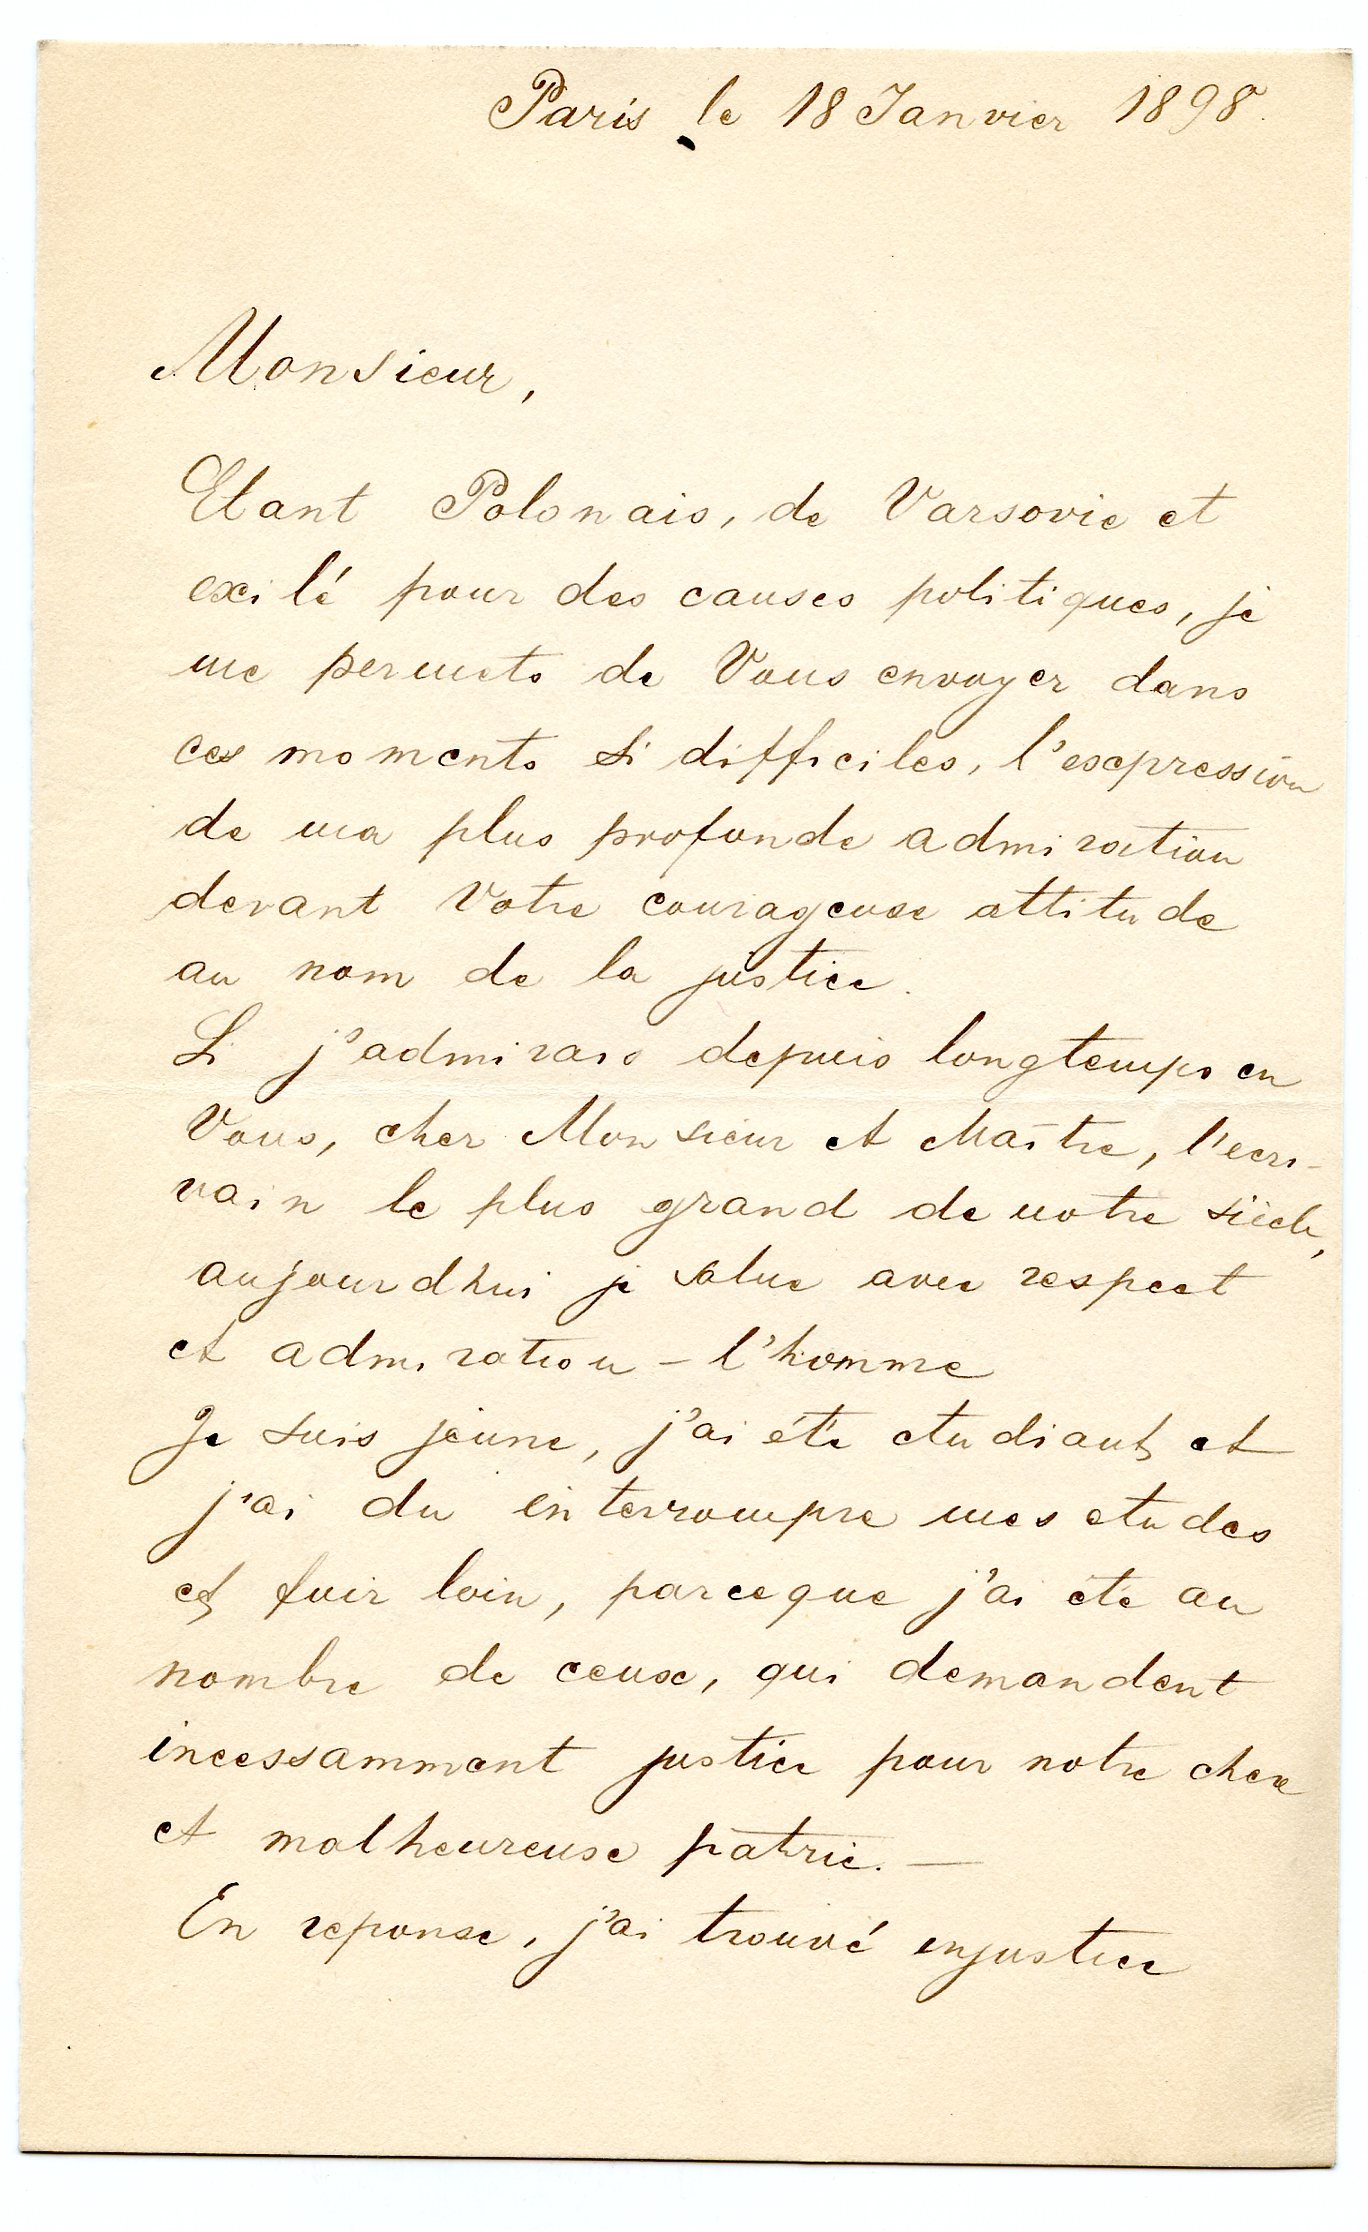 Paris le 18 Janvier 1898.
Monsieur,
Etant Polonais, de Varsovie et
exilé pour des causes politiques, je
me permets de Vous envoyer dans
ces moments si difficiles, l'expression
de ma plus profonde admiration
devant Votre courageuse attitude
au nom de la justice.
Si j'admirais depuis longtemps en
Vous, cher Monsieur et Maître, l'ecri-
vain le plus grand de notre siècle,
aujourdhui je salue avec respect
et admiration - l'homme
Je suis jeune, j'ai été etudiant et
j'ai du interrompre mes etudes
et fuir loin, parceque j'ai été au
nombre de ceux, qui demandent
incessamment justice pour notre chere
et malheureuse patrie. —
En reponse, j'ai trouvé injustice